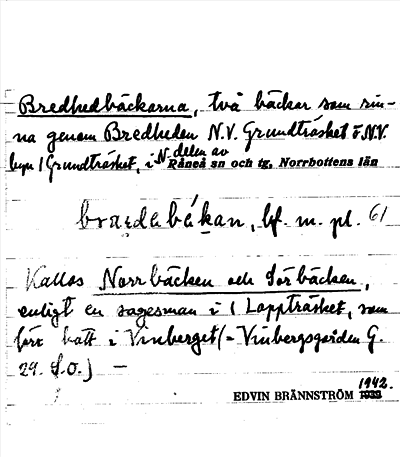 Bredhedbäckarna, två bäckar som rin-
na genom Bredheden N.V. Grundträsket o. N.V.
byn / Grundträsket, i N. delen av
Råneå sn och tg, Norrbottens län
bf. m. pl. 61
Kallas Norrbäcken och Sörbäcken,
enligt en sagesman i / Lappträsket, som
förr hatt i Vinberget (= Vinbergsgården G.
29. S.O.) —
1942.
EDVIN BRÄNNSTRÖM 1939